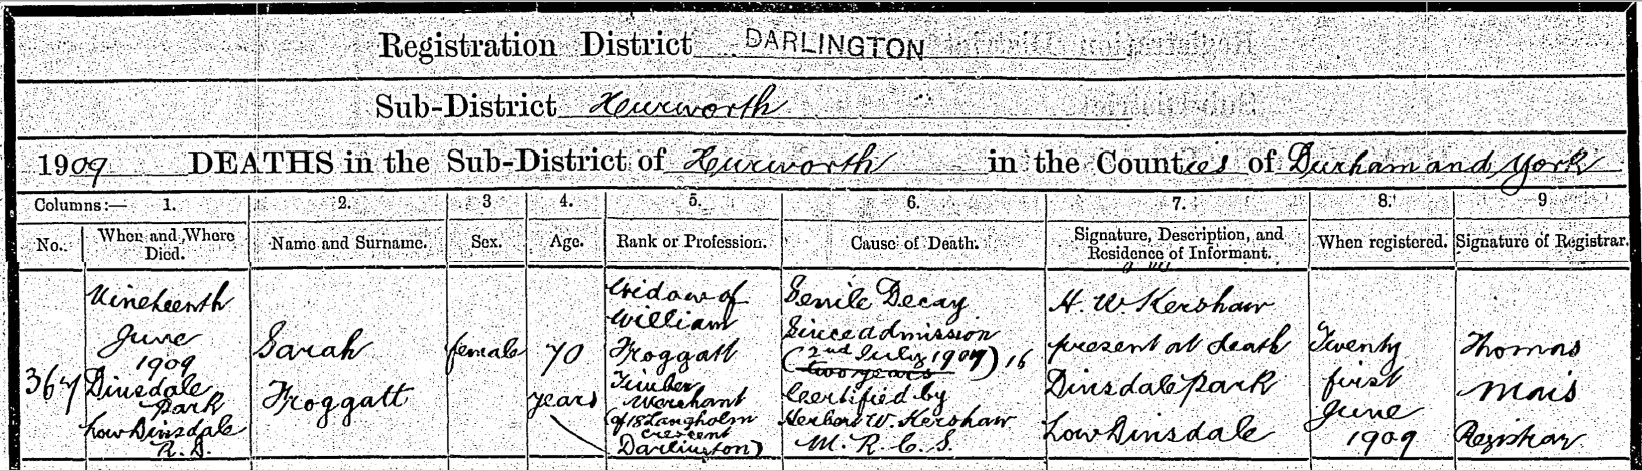 Registration District DARLINGTON
Sub-District Hurworth
1909 DEATHS in the Sub-District of Hurworth in the Counties of Durham and York
Columns:— 1. 2. 3 4. 5. 6. 7. 8. 9
No. When and Where Died. Name and Surname. Sex. Age. Rank or Profession. Cause of Death. Signature, Description, and Residence of Informant. When registered. Signature of Registrar.
367
Nineteenth
June
1909
Dinsdale
Park
Low Dinsdale
R.D.
Sarah
Froggatt
female
70
years
Widow of
William
Froggatt
Timber
Merchant
(of 18 Langholm
Crescent
Darlington)
Senile Decay
Since admission
(2nd July 1907) 16
two years
Certified by
Herbert W. Kershaw
M.R.C.S.
H. W. Kershaw
present at death
Dinsdale Park
Low Dinsdale
Twenty
first
June
1909
Thomas
Mais
Registrar